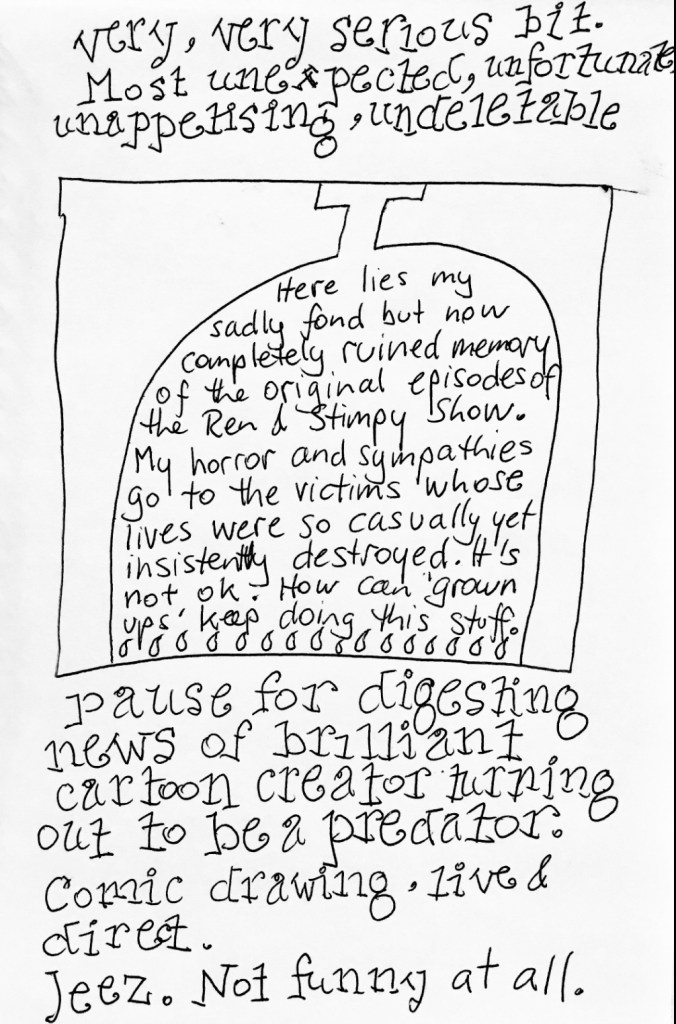 very, very serious bit.
Most unexpected, unfortunate
unappetising, undeletable
Here lies my
sadly fond but now
completely ruined memory
of the original episodes of
the Ren & Stimpy Show.
My horror and sympathies
go to the victims whose
lives were so casually yet
insistently destroyed. It's
not ok. How can 'grown
ups' keep doing this stuff.
pause for digesting
news of brilliant
cartoon creator turning
out to be a predator.
Comic drawing, live &
direct.
Jeez. Not funny at all.